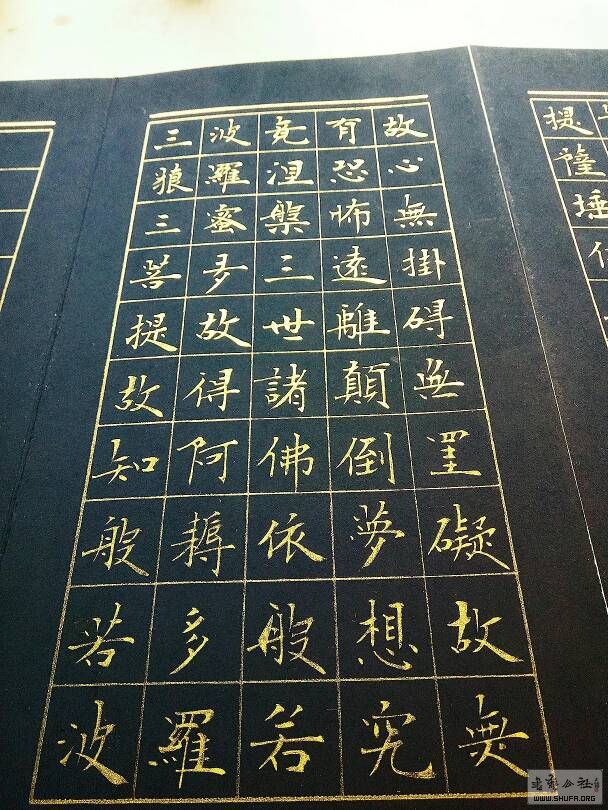 提薩埵
故心無掛碍無罣礙故無
有恐怖遠離顛倒夢想究
竟涅槃三世諸佛依般若
波羅蜜多故得阿耨多羅
三藐三菩提故知般若波
WWW.SHUFA.ORG